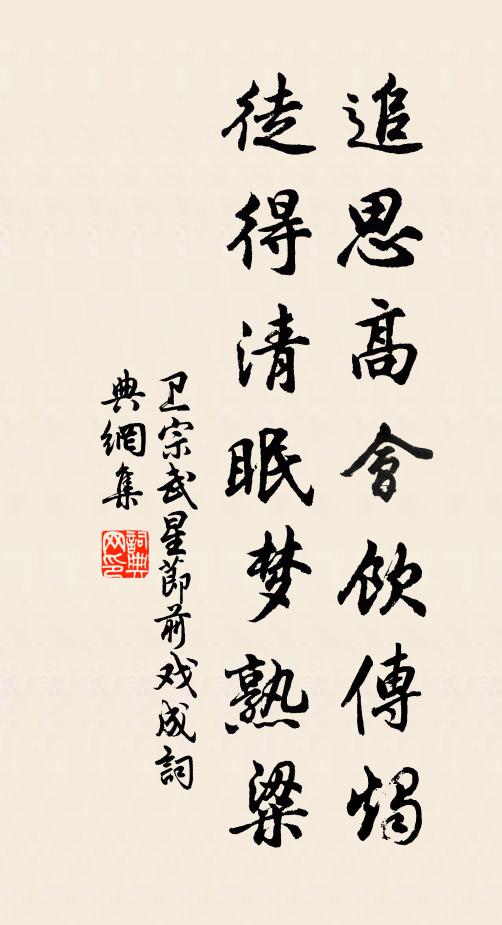 追思高會飲傳燭
徒得清眠梦熟梁
卫宗武星節前戏成詞
典網集
詞典网印